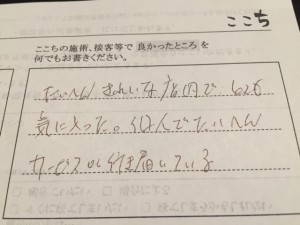 ここち
ここちの施術、接客等で良かったところを
何でもお書きください。
たいへんきれいな店内で
気に入った。 たいへん
サービスが行届いている